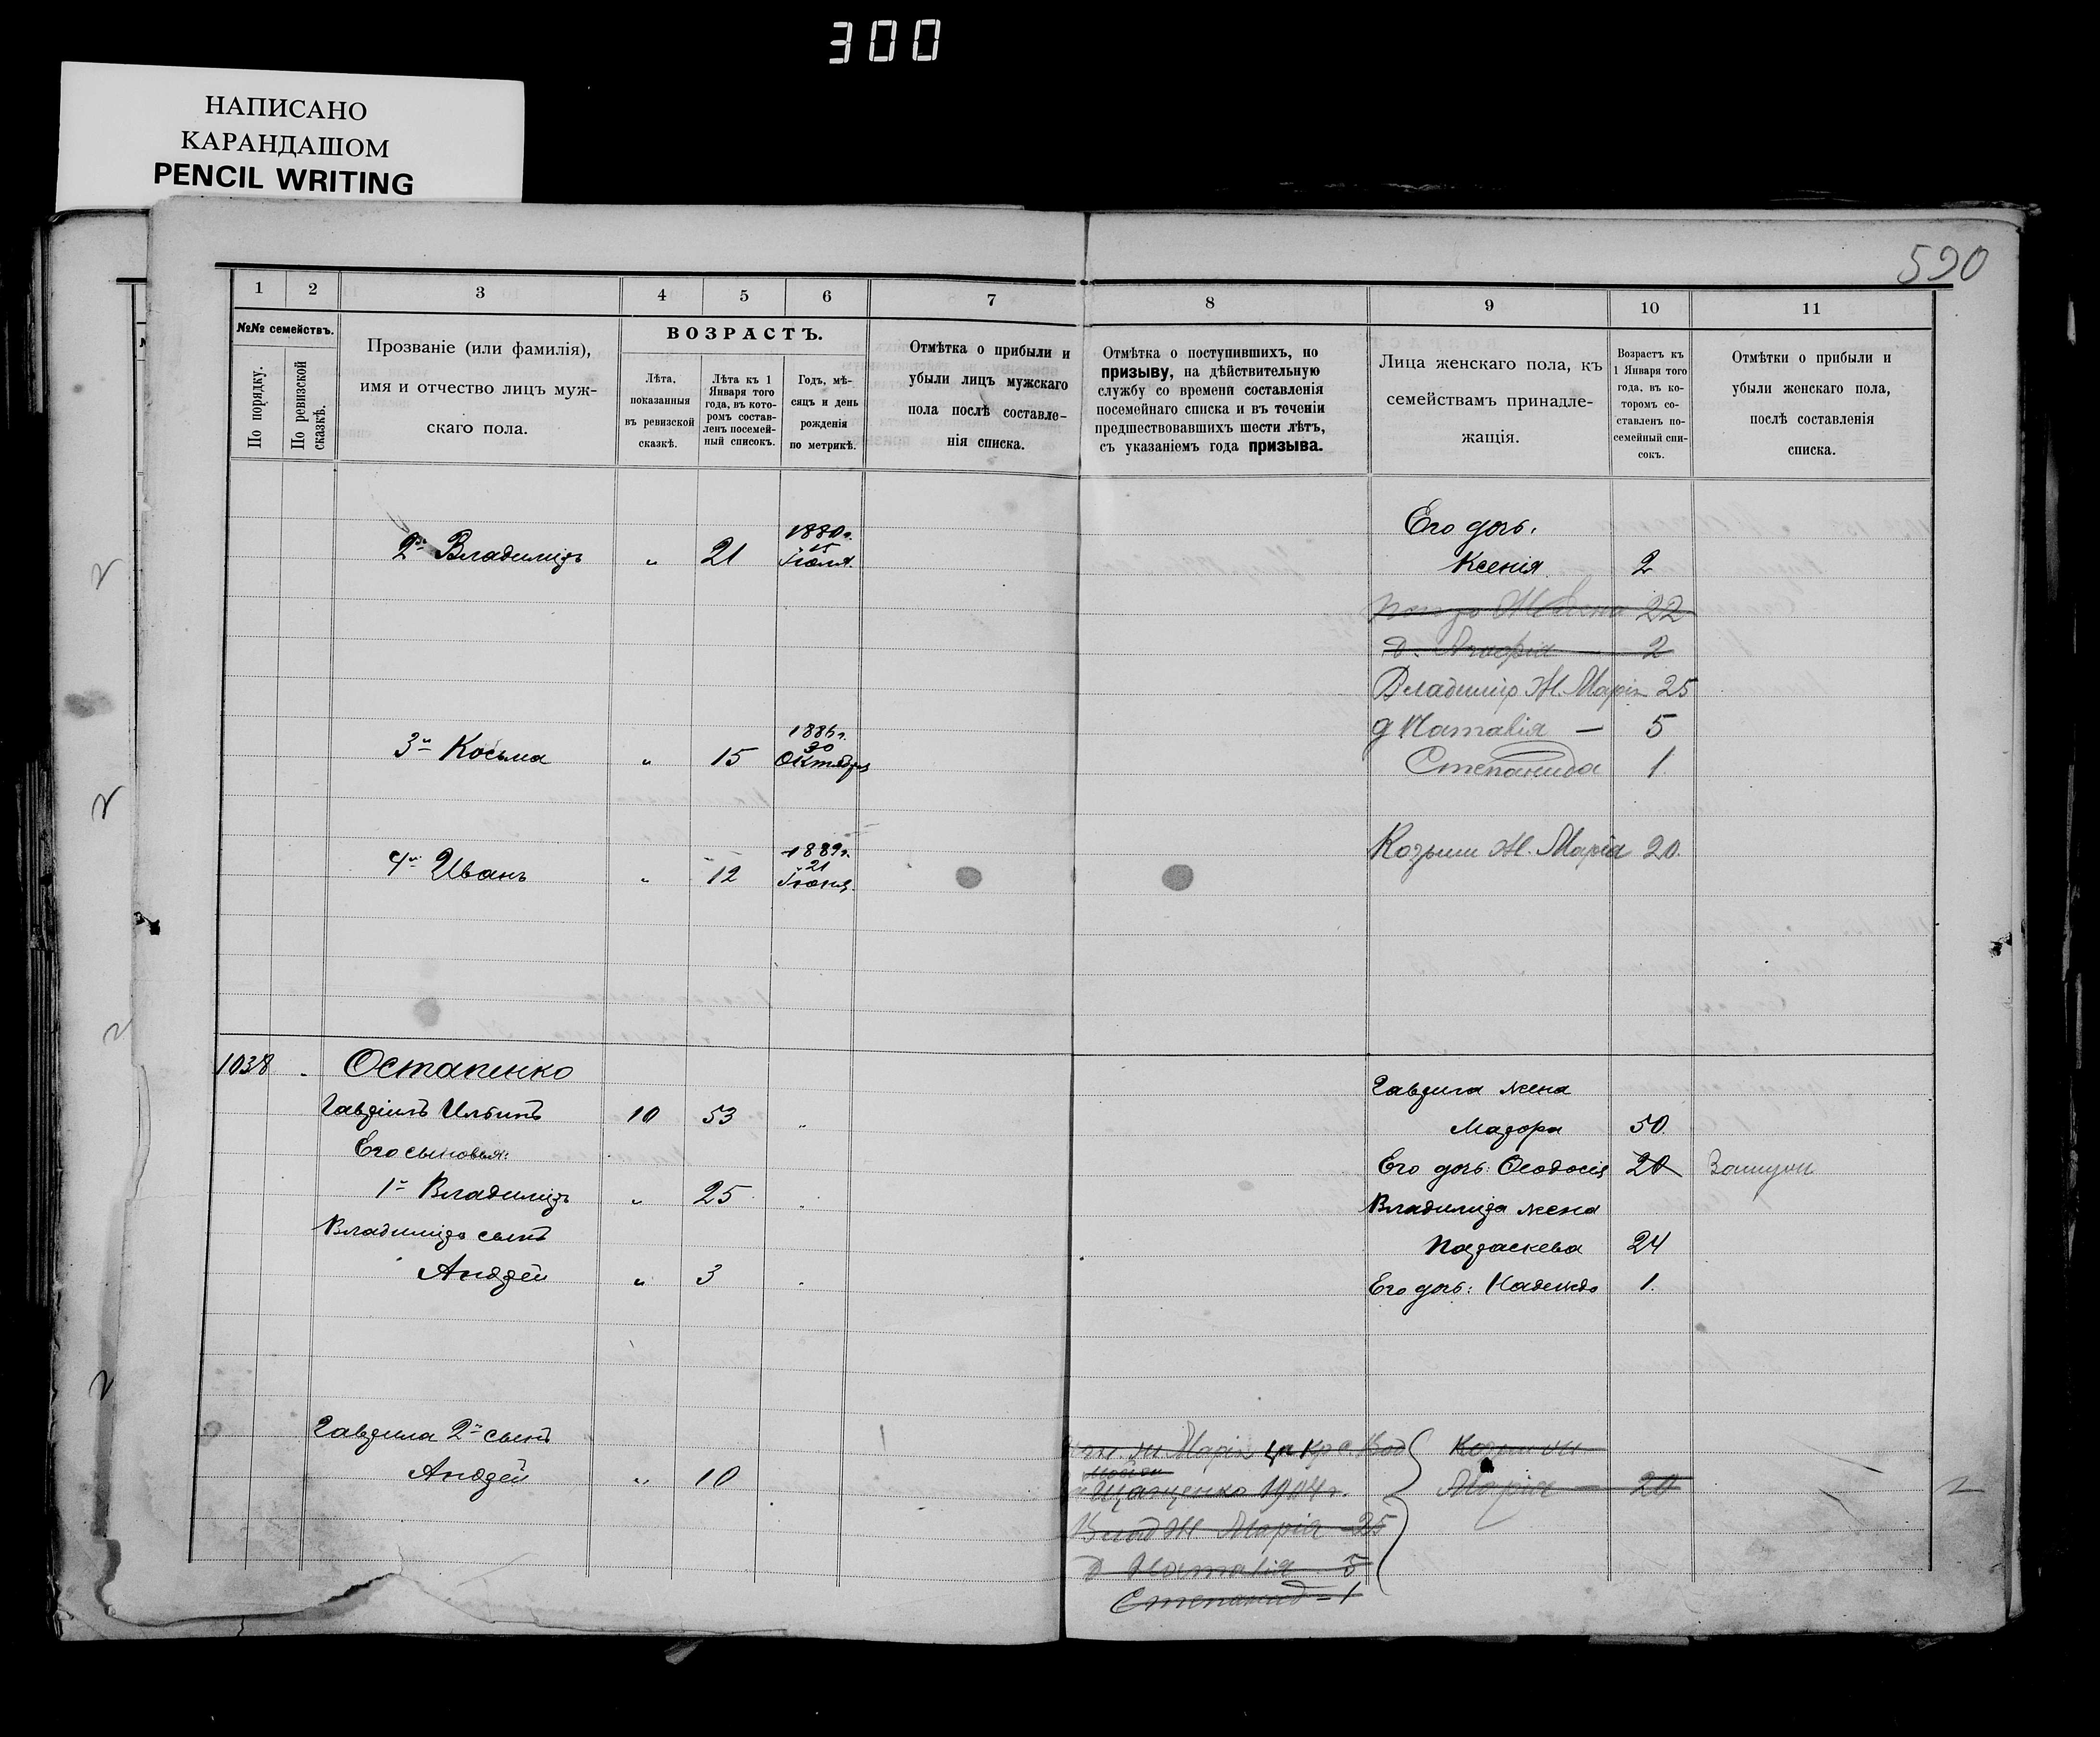 300
НАПИСАНО
КАРАНДАШОМ
PENCIL WRITING
590
1 2 3 4 5 6 7 8 9 10 11
№№ семействъ.
По порядку.
По ревизской сказкѣ.
Прозваніе (или фамилія),
имя и отчество лицъ муж-
скаго пола.
ВОЗРАСТЪ.
Лѣта,
показанныя
въ ревизской
сказкѣ.
Лѣта къ 1
Января того
года, въ кото-
ромъ состав-
ленъ посемей-
ный списокъ.
Годъ, мѣ-
сяцъ и день
рожденія
по метрикѣ.
Отмѣтка о прибыли и
убыли лицъ мужскаго
пола послѣ составле-
нія списка.
Отмѣтка о поступившихъ, по
призыву, на дѣйствительную
службу со времени составленія
посемейнаго списка и въ теченіи
предшествовавшихъ шести лѣтъ,
съ указаніемъ года призыва.
Лица женскаго пола, къ
семействамъ принадле-
жащія.
Возрастъ къ
1 Января того
года, въ ко-
торомъ со-
ставленъ по-
семейный спи-
сокъ.
Отмѣтки о прибыли и
убыли женскаго пола,
послѣ составленія
списка.
Его дочь:
2й Владиміръ " 21 1880г. 15 Іюля.
Ксенія 2
22
2
Владимір Ж. Марія 25
д Наталія — 5
3й Косьма " 15 1885г. 30 Октября
Степанида 1.
Козьми Ж. Марія 20.
4й Иванъ " 12 1889г. 21 Іюня.
1038 Остапенко
Гавріилъ Ильинъ 10 53 "
Гаврила жена
Мадора 50.
Его сыновья:
Его дочь: Ѳеодосія 20 Замуж
1й Владиміръ " 25
Владиміра жена
Владиміра сынъ
Параскева 24
Андрей " 3
Его дочь: Надежда 1.
Гаврила 2й сынъ
Андрей " 10
Марія
Козьми
Ищенко 1904г.
Марія — 20
Влад Ж Марія — 25
д Наталія — 5
Степанид — 1